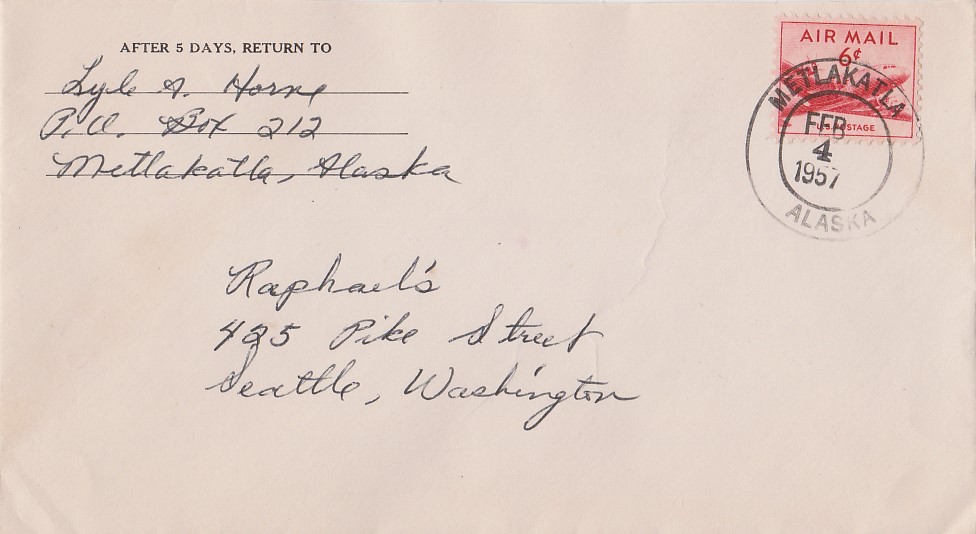 AFTER 5 DAYS, RETURN TO
Lyle A. Horne
P.O. Box 212
Metlakatla, Alaska
AIR MAIL
6¢
U.S. POSTAGE
METLAKATLA
FEB
4
1957
ALASKA
Raphael's
425 Pike Street
Seattle, Washington